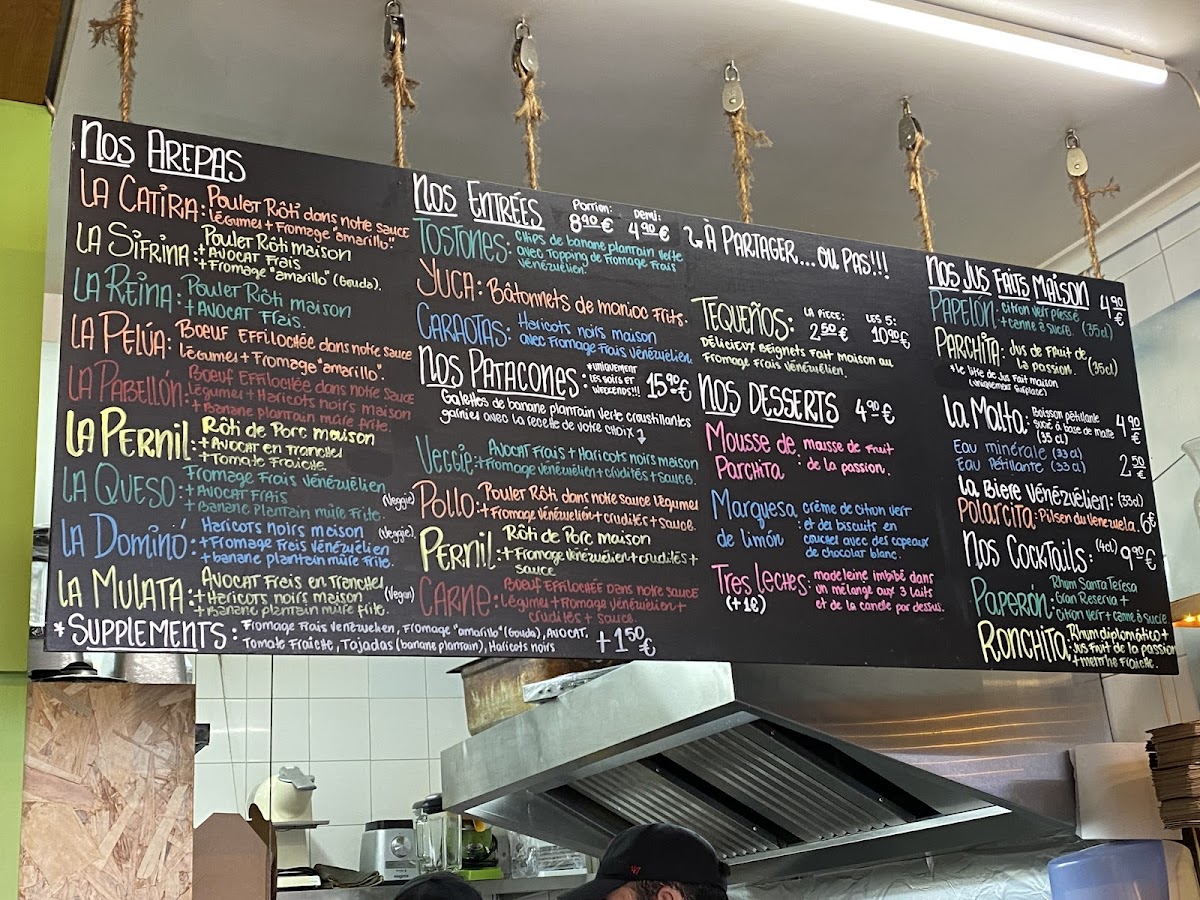 Nos Arepas
La Catira: Poulet Rôti dans notre sauce
légumes + Fromage "amarillo"
La Sifrina: Poulet Rôti maison
+ Avocat Frais
+ Fromage "amarillo" (Gouda).
La Reina: Poulet Rôti maison
+ Avocat Frais.
La Pelúa: Boeuf Effilochée dans notre sauce
légumes + Fromage "amarillo".
La Pabellón: Boeuf Effilochée dans notre sauce
légumes + Haricots noirs maison
+ Banane plantain mûre frite.
La Pernil: Rôti de Porc maison
+ Avocat en tranches
+ Tomate Fraîche.
La Queso: Fromage Frais Vénézuélien
+ Avocat Frais (Veggie)
+ Banane plantain mûre Frite.
La Dominó: Haricots noirs maison (Veggie).
+ Fromage Frais Vénézuélien
+ banane plantain mûre Frite.
La Mulata: Avocat Frais en Tranches
+ Haricots noirs maison (Vegan)
+ Banane plantain mûre frite.
* Supplements: Fromage Frais Vénézuelien, Fromage "amarillo" (Gouda), Avocat.
Tomate Fraîche, Tajadas (banane plantain), Haricots noirs
+ 1 50 €
Nos Entrées Portion: 8 90 € Demi: 4 90 €
↳ À Partager... ou pas!!!
Tostones: Chips de banane plantain verte
avec Topping de Fromage Frais
Vénézuélien.
Yuca: Bâtonnets de manioc Frits.
Caraotas: Haricots noirs maison
avec Fromage Frais Vénézuélien.
Nos Patacones: *uniquement
les soirs et
weekends!!! 15 90 €
Galettes de banane plantain verte croustillantes
garnies avec la recette de votre choix ⤵
Veggie: Avocat Frais + Haricots noirs maison
+ Fromage Vénézuélien + crudités + sauce.
Pollo: Poulet Rôti dans notre sauce légumes
+ Fromage Vénézuélien + crudités + sauce.
Pernil: Rôti de Porc maison
+ Fromage Vénézuélien + crudités +
sauce
Carne: Boeuf Effilochée dans notre sauce
Légumes + Fromage Vénézuélien +
crudités + sauce.
Tequeños: La pièce: 2 50 € Les 5: 10 90 €
Délicieux beignets fait maison au
Fromage Frais Vénézuélien.
Nos Desserts 4 90 €
Mousse de Parchita: mousse de fruit
de la passion.
Marquesa de limón: crème de citron vert
et des biscuits en
couches avec des copeaux
de chocolat blanc.
Tres leches: (+1€) madeleine imbibé dans
un mélange aux 3 laits
et de la canelle par dessus.
Nos Jus Faits Maison 4 90 €
Papelón: Citron vert pressé
+ canne à sucre. (35cl)
Parchita: Jus de Fruit de
la passion. (35cl)
*le litre de Jus Fait maison
(uniquement surplace)
La Malta: Boisson pétillante
sucré à base de malte
(35 cl) 4 90 €
Eau minérale (33 cl)
Eau Pétillante (33 cl) 2 50 €
La Biere Vénézuélien: (33cl)
Polarcita: Pilsen du Venezuela. 6€
Nos Cocktails: (4cl) 9 90 €
Paperon: Rhum Santa Teresa
Gran Reserva +
Citron vert + canne à sucre
Ronchita: Rhum diplomático +
Jus Fruit de la passion
+ menthe Fraîche.
47